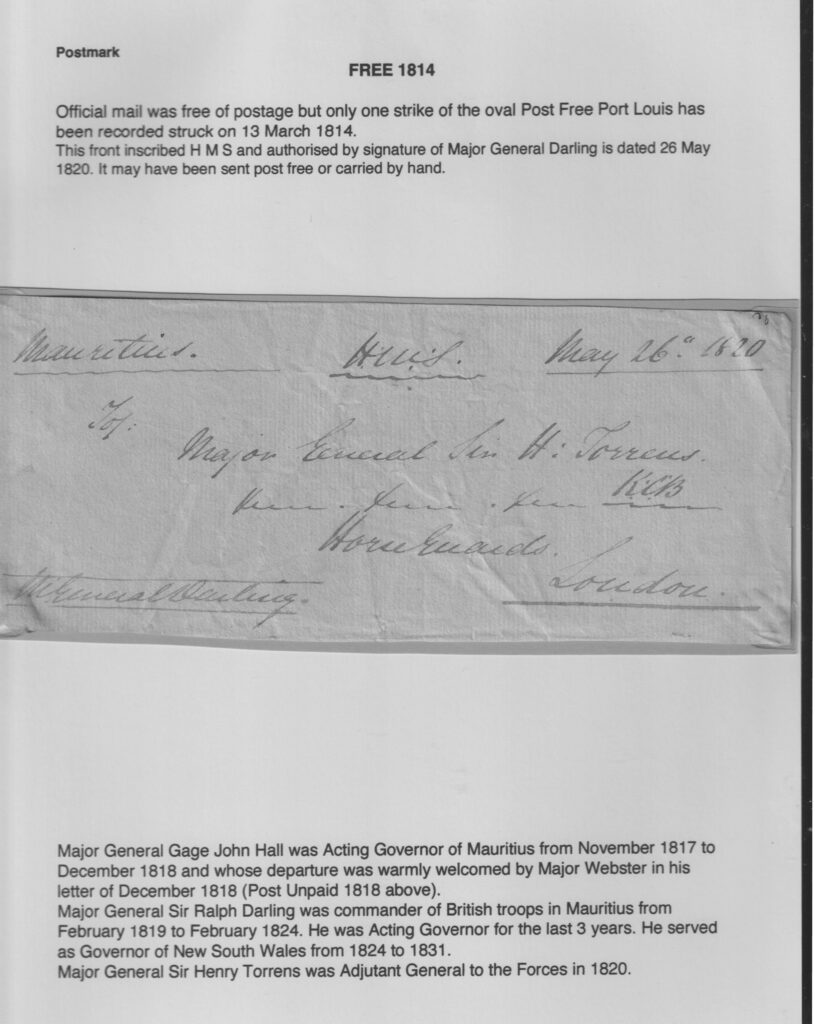 Postmark
FREE 1814
Official mail was free of postage but only one strike of the oval Post Free Port Louis has
been recorded struck on 13 March 1814.
This front inscribed H M S and authorised by signature of Major General Darling is dated 26 May
1820. It may have been sent post free or carried by hand.
Mauritius. HMS. May 26. 1820
To/:
Major General Sir H: Torrens.
KCB
Horse Guards.
London.
M General Darling.
Major General Gage John Hall was Acting Governor of Mauritius from November 1817 to
December 1818 and whose departure was warmly welcomed by Major Webster in his
letter of December 1818 (Post Unpaid 1818 above).
Major General Sir Ralph Darling was commander of British troops in Mauritius from
February 1819 to February 1824. He was Acting Governor for the last 3 years. He served
as Governor of New South Wales from 1824 to 1831.
Major General Sir Henry Torrens was Adjutant General to the Forces in 1820.